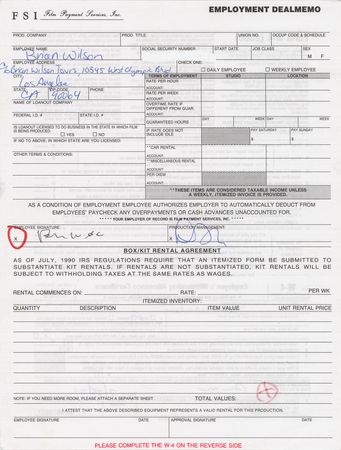 FSI Film Payment Services, Inc. EMPLOYMENT DEALMEMO
PROD. COMPANY PROD. TITLE UNION/OCC. CODE/SCHEDULE
EMPLOYEE NAME SOCIAL SECURITY NUMBER START DATE JOB CLASS SEX
Brian Wilson M F
EMPLOYEE ADDRESS CHECK ONE:
c/o Brian Wilson Tours, 10345 West Olympic Blvd DAILY EMPLOYEE WEEKLY EMPLOYEE
CITY TERMS OF EMPLOYMENT STUDIO LOCATION
Los Angeles RATE PER HOUR
ACCOUNT:
STATE ZIP PHONE RATE PER WEEK
CA 90064 ACCOUNT:
NAME OF LOANOUT COMPANY OVERTIME RATE IF
DIFFERENT FROM GUAR.
ACCOUNT:
FEDERAL I.D. # STATE I.D. # GUARANTEED HOURS DAY WEEK DAY WEEK
IS LOANOUT LICENSED TO DO BUSINESS IN THE STATE IN WHICH FILM
IS BEING PRODUCED? YES NO
IF RATE DOES NOT
INCLUDE IDLE PAY SATURDAY PAY SUNDAY
$ $
IF NO TO ABOVE, IN WHICH STATE ARE YOU LICENSED:
OTHER TERMS & CONDITIONS:
**CAR RENTAL
ACCOUNT:
**MISCELLANEOUS RENTAL
ACCOUNT:
PER DIEM
ACCOUNT:
**THESE ITEMS ARE CONSIDERED TAXABLE INCOME UNLESS
A WEEKLY, ITEMIZED INVOICE IS SUBMITTED.
AS A CONDITION OF EMPLOYMENT EMPLOYEE AUTHORIZES EMPLOYER TO AUTOMATICALLY DEDUCT FROM
EMPLOYEES' PAYCHECK ANY OVERPAYMENTS OR CASH ADVANCES UNACCOUNTED FOR.
*** YOUR EMPLOYER OF RECORD IS FILM PAYMENT SERVICES, INC. ***
EMPLOYEE SIGNATURE PRODUCTION MANAGEMENT
X X
BOX/KIT RENTAL AGREEMENT
AS OF JULY, 1990 IRS REGULATIONS REQUIRE THAT AN ITEMIZED FORM BE SUBMITTED TO
SUBSTANTIATE KIT RENTALS. IF RENTALS ARE NOT SUBSTANTIATED, KIT RENTALS WILL BE
SUBJECT TO WITHHOLDING TAXES AT THE SAME RATES AS WAGES.
RENTAL RATE: PER WK
ITEMIZED INVENTORY:
QUANTITY DESCRIPTION VALUE/ITEM UNIT RENTAL PRICE
NOTE: IF YOU NEED MORE ROOM, PLEASE ATTACH A SEPARATE SHEET TOTAL VALUES:
I ATTEST THAT THE ABOVE DESCRIBED EQUIPMENT REPRESENTS A VALID RENTAL FOR THIS PRODUCTION.
EMPLOYEE SIGNATURE DATE APPROVAL SIGNATURE DATE
PLEASE COMPLETE THE W-4 ON THE REVERSE SIDE